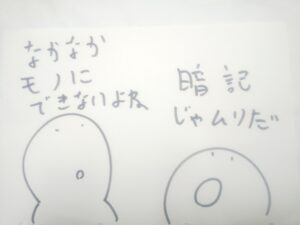 なかなか
モノに
できないよね
暗記
じゃムリだ